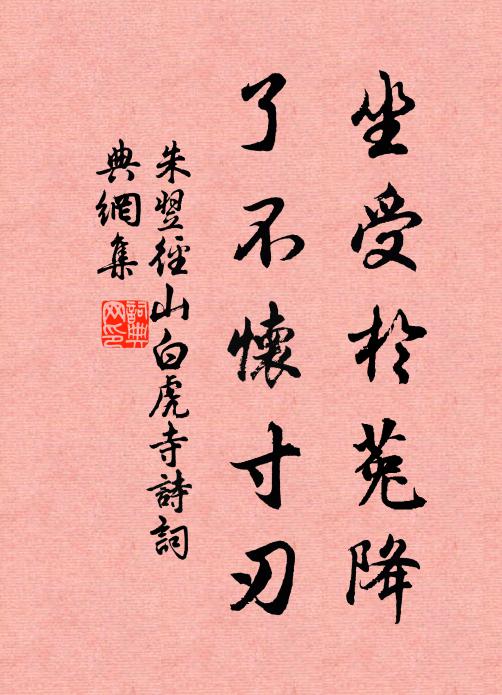 坐受於菟降
了不懷寸刃
朱翌徑山白虎寺詩詞
典網集
詞典
网印